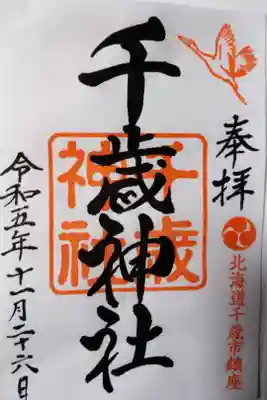 奉拝
北海道千歳市鎮座
千歳神社
千歳
神社
令和五年十一月二十六日